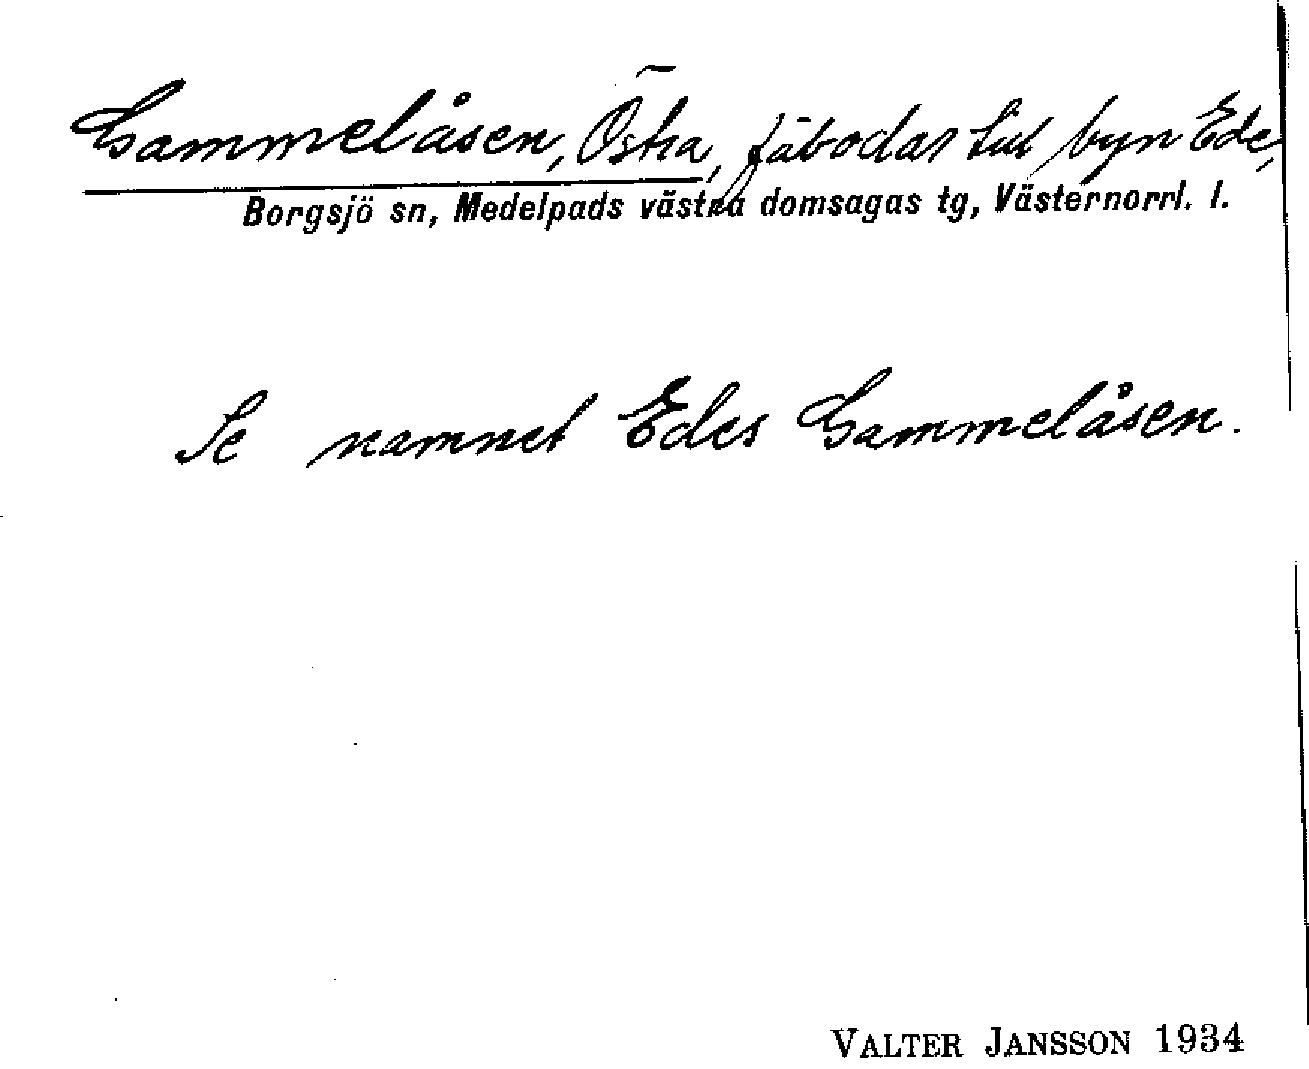 Gammelåsen, Östra, fäbodar till byn Ede,
Borgsjö sn, Medelpads västra domsagas tg, Västernorrl. l.
Se namnet Edes Gammelåsen.
VALTER JANSSON 1934